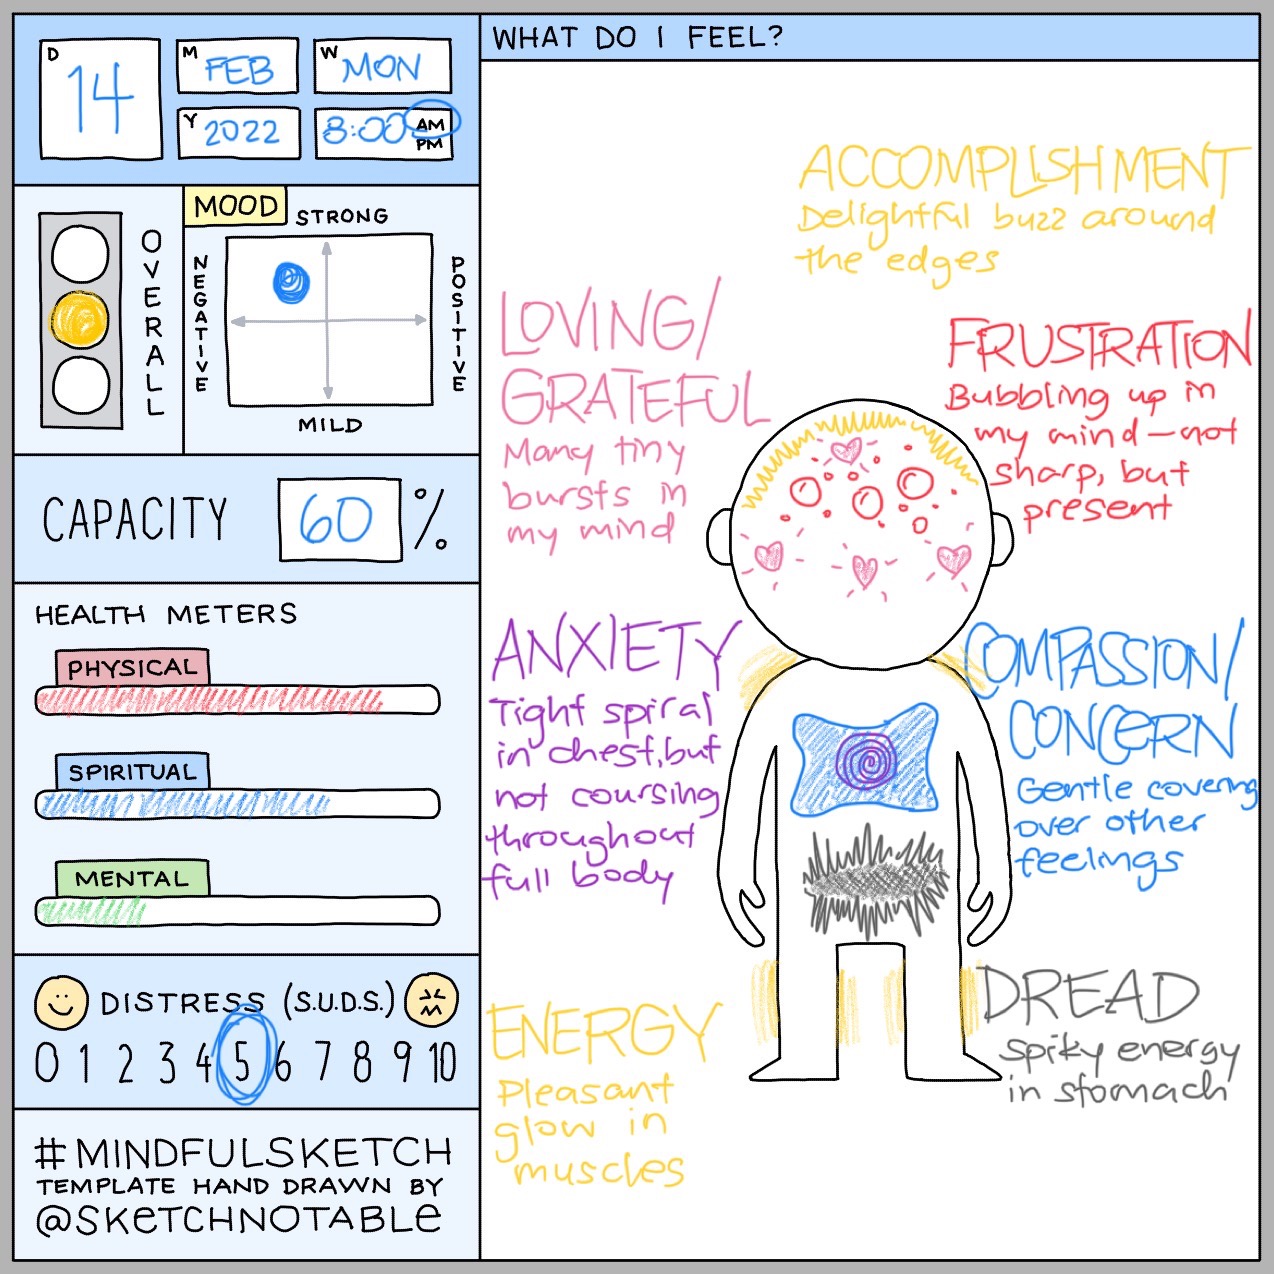 D 14
M FEB
W MON
Y 2022
8:00 AM
PM
OVERALL
MOOD
STRONG
NEGATIVE
POSITIVE
MILD
CAPACITY 60 %
HEALTH METERS
PHYSICAL
SPIRITUAL
MENTAL
DISTRESS (S.U.D.S.)
0 1 2 3 4 5 6 7 8 9 10
#MINDFULSKETCH
TEMPLATE HAND DRAWN BY
@SKETCHNOTABLE
WHAT DO I FEEL?
ACCOMPLISHMENT
Delightful buzz around
the edges
LOVING/
GRATEFUL
Many tiny
bursts in
my mind
FRUSTRATION
Bubbling up in
my mind—not
sharp, but
present
ANXIETY
Tight spiral
in chest, but
not coursing
throughout
full body
COMPASSION/
CONCERN
Gentle covering
over other
feelings
ENERGY
Pleasant
glow in
muscles
DREAD
Spiky energy
in stomach